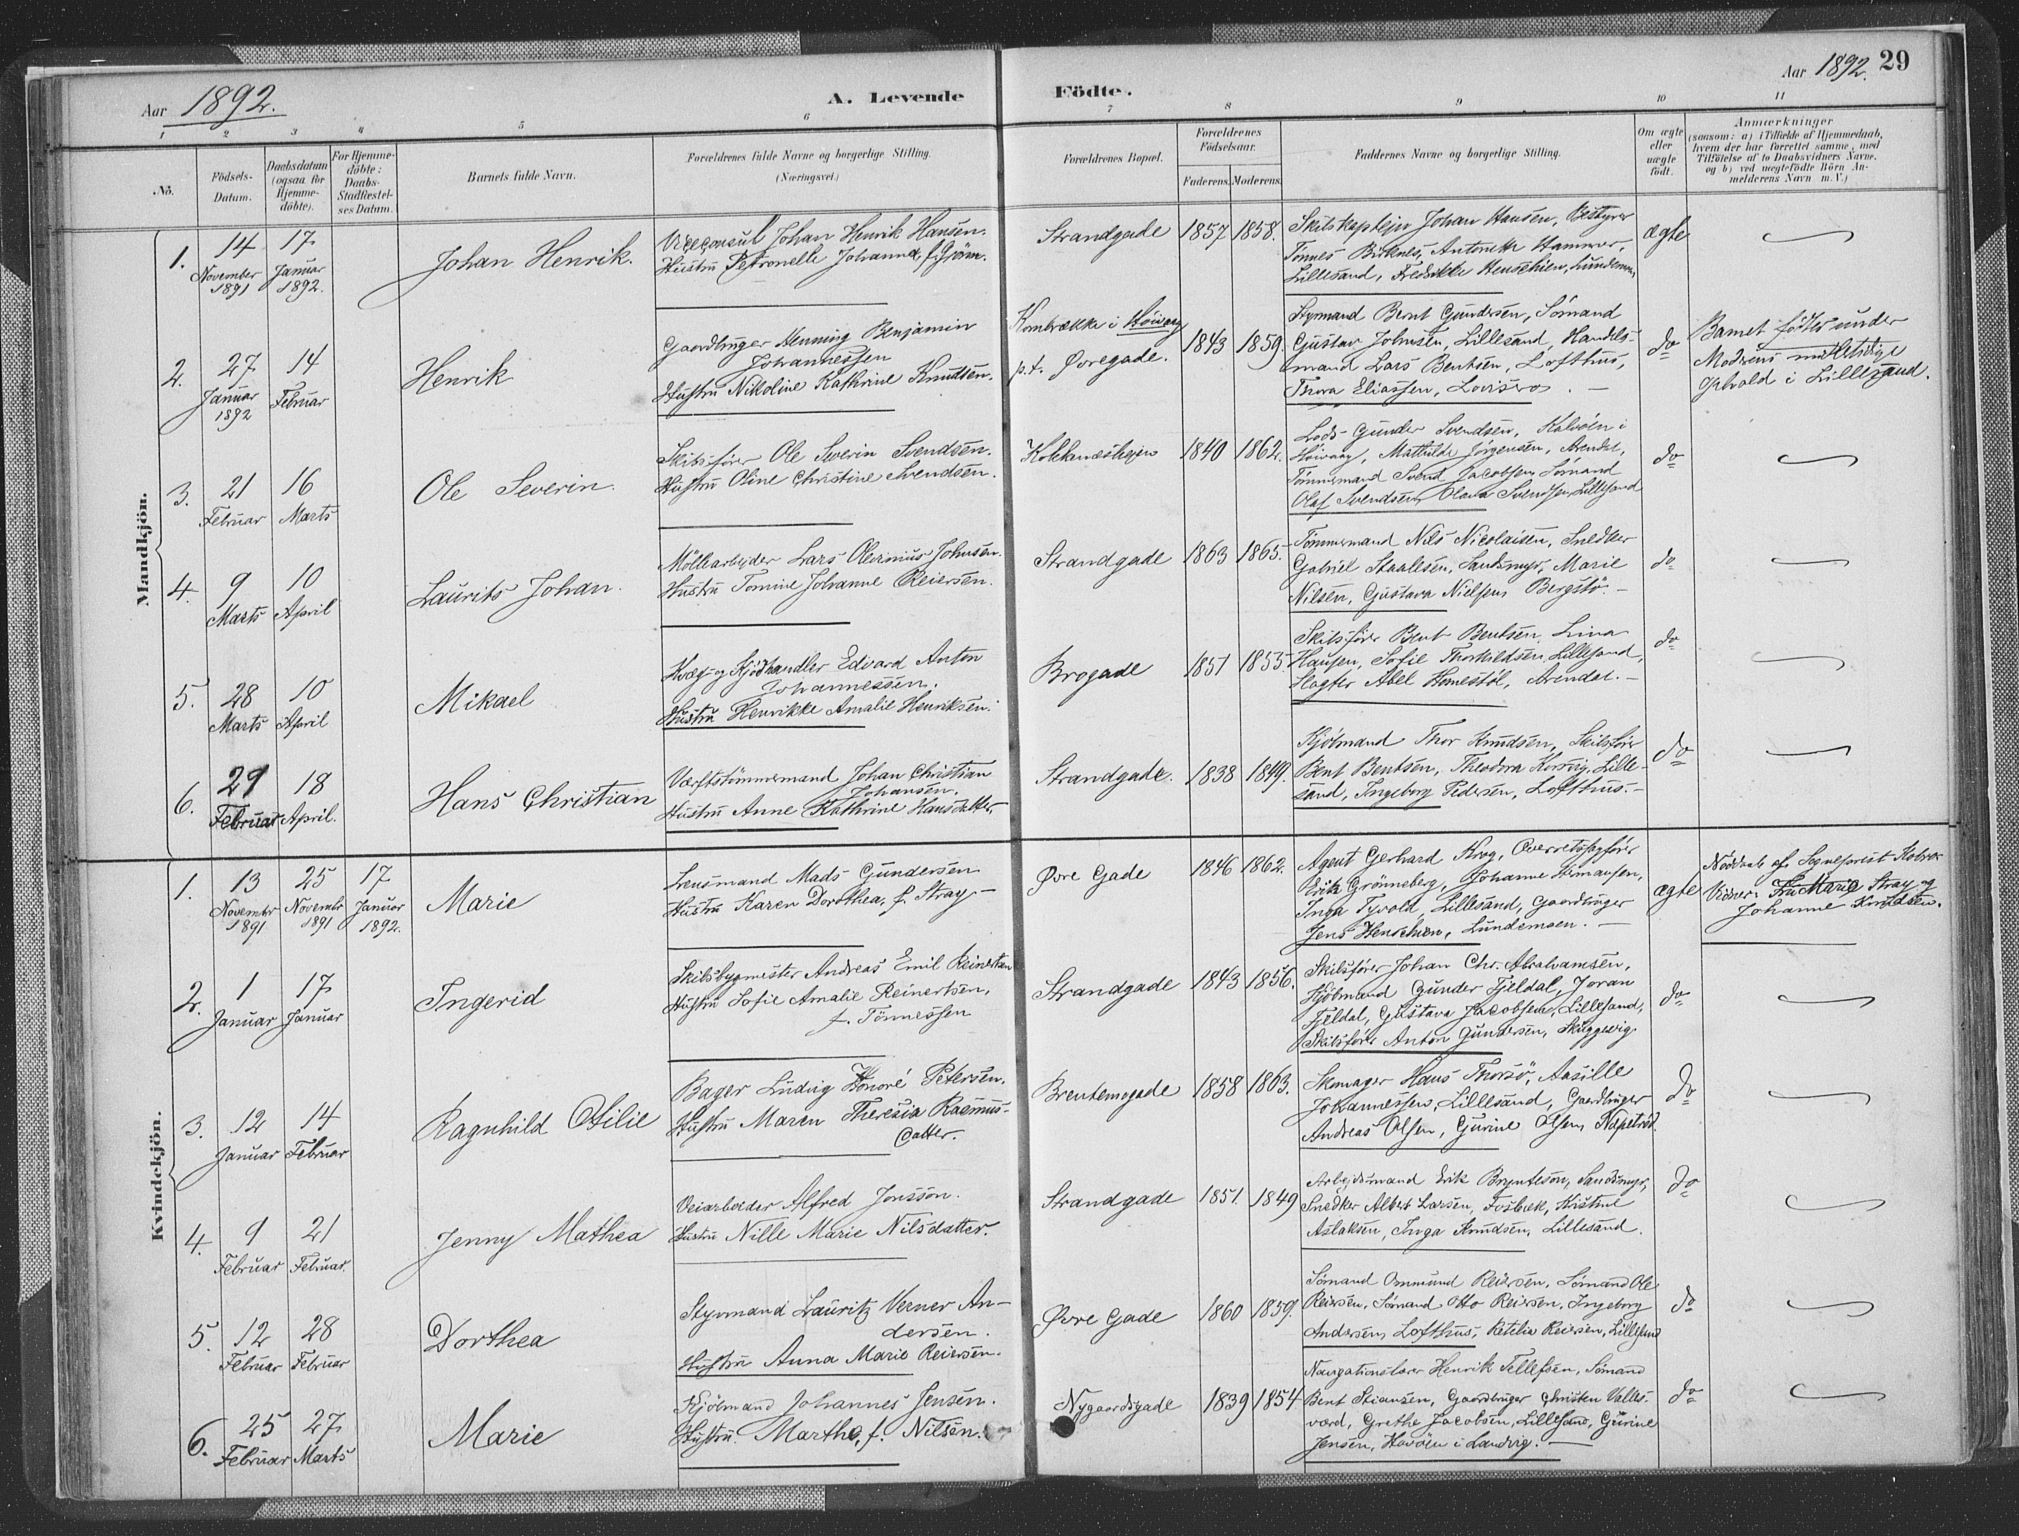 Aar 1892.
A. Levende Födte.
Aar 1892. 29
1 2 3 4 5 6 7 8 9 10 11
No.
Födsels-
Datum.
Daabsdatum
(ogsaa for
Hjemme-
döbte).
For Hjemme-
döbte:
Daabs-
Stadfæstel-
ses Datum.
Barnets fulde Navn.
Forældrenes fulde Navne og borgerlige Stilling.
(Næringsvei.)
Forældrenes Bopæl.
Forældrenes
Födselsaar.
Faderens. Moderens.
Faddernes Navne og borgerlige Stilling.
Om ægte
eller
uægte
født.
Anmærkninger
(saasom: a) i Tilfælde af Hjemmedaab,
hvem der har forrettet samme, med
Tilföielse af to Daabsvidners Navne,
og b) ved uægtefödte Börn An-
melderens Navn m. V.)
Mandkjön.
1.
14 November 1891
17 Januar 1892.
Johan Henrik.
Viceconsul Johan Henrik Hansen.
Hustru Petronelle Johanna,
Strandgade 1857 1858.
Johan Hansen, Bestyrer
Tönnes Birknes, Antonette Hammer,
Lillesand, Fredrikke Henschien,
ægte
2.
27 Januar 1892
14 Februar
Henrik
Gaardbruger Henning Benjamin
Johannessen
Hustru Nikoline Kathrine Knudsen.
i Höivaag
p.t. Øvregade. 1843 1859.
Styrmand Bernt Gundersen, Sömand
Gustav Johnsen, Lillesand, Handels-
mand Lars Bentsen, Lofthus,
Thora Eliassen,
do
Barnet födtes under
Moderens midlertidige
Ophold i Lillesand.
3.
21 Februar
16 Marts
Ole Severin.
Skibsförer Ole Severin Svendsen.
Hustru Oline Christine Svendsen.
Kokkenæsheien 1840 1862.
Lods Gunder Svendsen, Kalvöen i
Höivaag, Mathilde Jörgensen, Arendal,
Tömmermand Svend Jacobsen, Sömand
Olaf Svendsen, Olava Svendsen, Lillesand
do
4.
9 Marts
10 April
Laurits Johan.
Möllearbejder Lars Olevinius Johnsen.
Hustru Tomine Johanne Reiersen.
Strandgade 1863 1865.
Tömmermand Nils Nicolaisen, Snedker
Gabriel Staalesen, Sandsmyr, Marie
Nilsen, Gustava Nielsen, Bergstö.
do
5.
28 Marts
10 April
Mikael
Kvæg- og Kjödhandler Edvard Anton
Johannessen.
Hustru Henrikke Amalie Henriksen.
Brogade 1851 1855
Skibsförer Bent Bentsen, Lina
Hansen, Sofie Thorkildsen, Lillesand,
Slagter Abel Homestöl, Arendal.
do
6.
29 Februar
18 April.
Hans Christian
Værftstömmermand Johan Christian
Johansen.
Hustru Anne Kathrine Hansdatter,
Strandgade. 1838 1849.
Kjöbmand Thor Knudsen, Skibsförer
Bent Bentsen, Theodora Korsvig, Lille-
sand, Ingeborg Pedersen, Lofthus.
do
Kvindekjön.
1.
13 November 1891
25 Novembr 1891
17 Januar 1892.
Marie
Lensmand Mads Gundersen
Hustru Karen Dorothea, f. Stray.
Øvre Gade 1846 1862.
Agent Gerhard Krog, Overretssagförer
Erik Grönneberg, Johanne
Inga Tyvold, Lillesand, Gaardbruger
Jens Henschien, Lundemoen.
ægte
Nöddaab af Sogneprest
Vidner: Marie Stray og
Johanne Knudsen.
2.
1 Januar
17 Januar
Ingerid
Skibsbygmester Andreas Emil Reinertsen
Hustru Sofie Amalie Reinertsen,
f. Tönnessen
Strandgade 1843 1856.
Skibsförer Johan Chr. Abrahamsen,
Kjöbmand Gunder Fjeldal, Joran
Fjeldal, Gustava Jacobsen, Lillesand,
Skibsförer Anton Gundersen, Skuggevig.
do
3.
12 Januar
14 Februar
Ragnhild Otilie
Bager Ludvig Honoré Petersen.
Hustru Maren Theresia Rasmus-
datter.
Brentemogade 1858 1863.
Skomager Hans Thorsö, Aasille
Johannessen, Lillesand, Gaardbruger
Andreas Olsen, Gurine Olsen,
do
4.
9 Februar
21 Februar.
Jenny Mathea
Veiarbeider Alfred Jonsson.
Hustru Nille Marie Nilsdatter.
Strandgade 1851. 1849
Arbejdsmand Erik Bryntesön, Sandsmyr,
Snedker Albert Larsen, Fosbæk, Kistine
Aslaksen, Inga Knudsen, Lillesand.
do
5.
12 Februar
28 Februar
Dorthea
Styrmand Lauritz Verner An-
dersen.
Hustru Anna Marie Reiersen.
Øvre Gade 1860 1859.
Sömand Ommund Reiersen, Sömand Ole
Reiersen, Sömand Otto Reiersen, Ingeborg
Andersen, Lofthus, Reiersen, Lillesand
do
6.
25 Februar
27 Marts
Marie
Kjöbmand Johannes Jensen.
Hustru Marthe, f. Nilsen.
Nygaardsgade 1839 1854
Navigationslærer Henrik Tellefsen, Sömand
Bent Stiansen, Gaardbruger Christen Valles-
værd, Grethe Jacobsen, Lillesand, Gurine
Jensen, Havöen i Landvig.
do